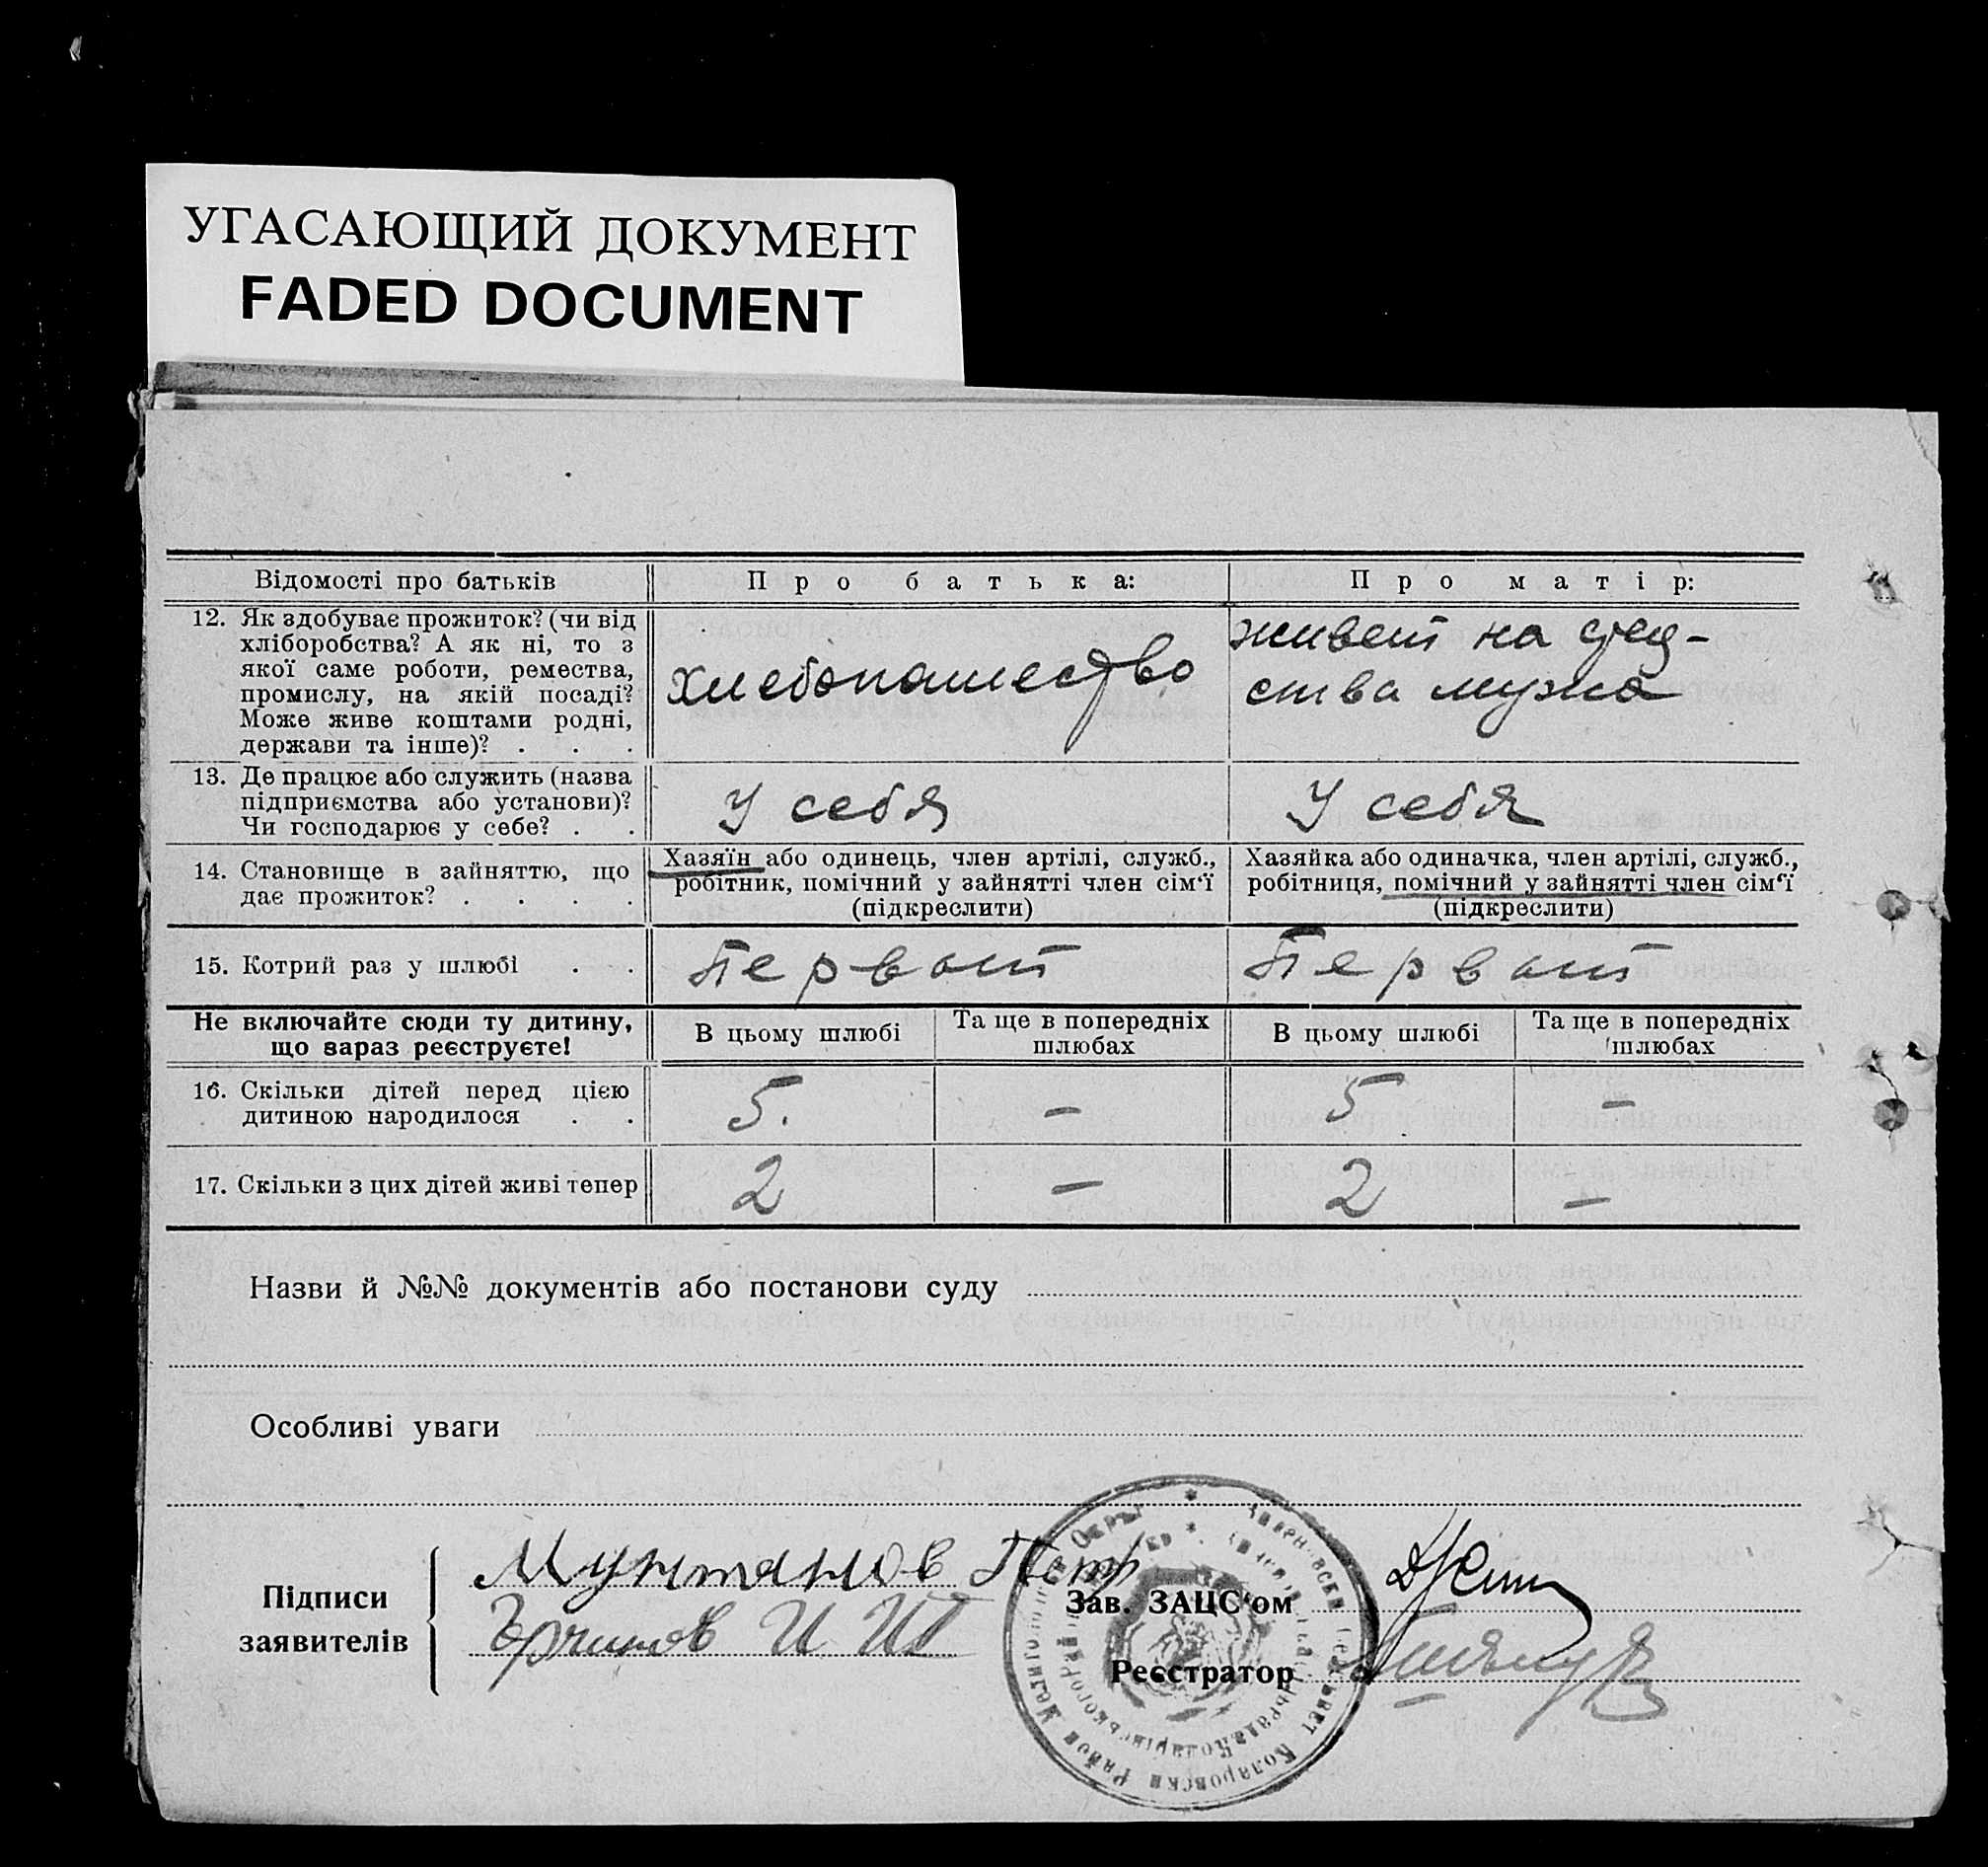 УГАСАЮЩИЙ ДОКУМЕНТ
FADED DOCUMENT
Відомості про батьків
Про батька:
Про матір:
12. Як здобуває прожиток? (чи від
хліборобства? А як ні, то з
якої саме роботи, ремества,
промислу, на якій посаді?
Може живе коштами родні,
держави та інше)? . . .
хлебопашество
живет на сред-
ства мужа
13. Де працює або служить (назва
підприємства або установи)?
Чи господарює у себе? . .
У себя
У себя
14. Становище в зайняттю, що
дає прожиток? . . . .
Хазяїн або одинець, член артілі, служб.,
робітник, помічний у зайнятті член сім‘ї
(підкреслити)
Хазяйка або одиначка, член артілі, служб.,
робітниця, помічний у зайнятті член сім‘ї
(підкреслити)
15. Котрий раз у шлюбі . .
Первом
Первом
Не включайте сюди ту дитину,
що зараз реєструєте!
В цьому шлюбі
Та ще в попередніх
шлюбах
В цьому шлюбі
Та ще в попередніх
шлюбах
16. Скільки дітей перед цією
дитиною народилося . .
5.
—
5
—
17. Скільки з цих дітей живі тепер
2
—
2
—
Назви й №№ документів або постанови суду
Особливі уваги
Підписи
заявителів
Мунтянов Петр
Зав. ЗАЦС‘ом
Реєстратор
Коларовски Район